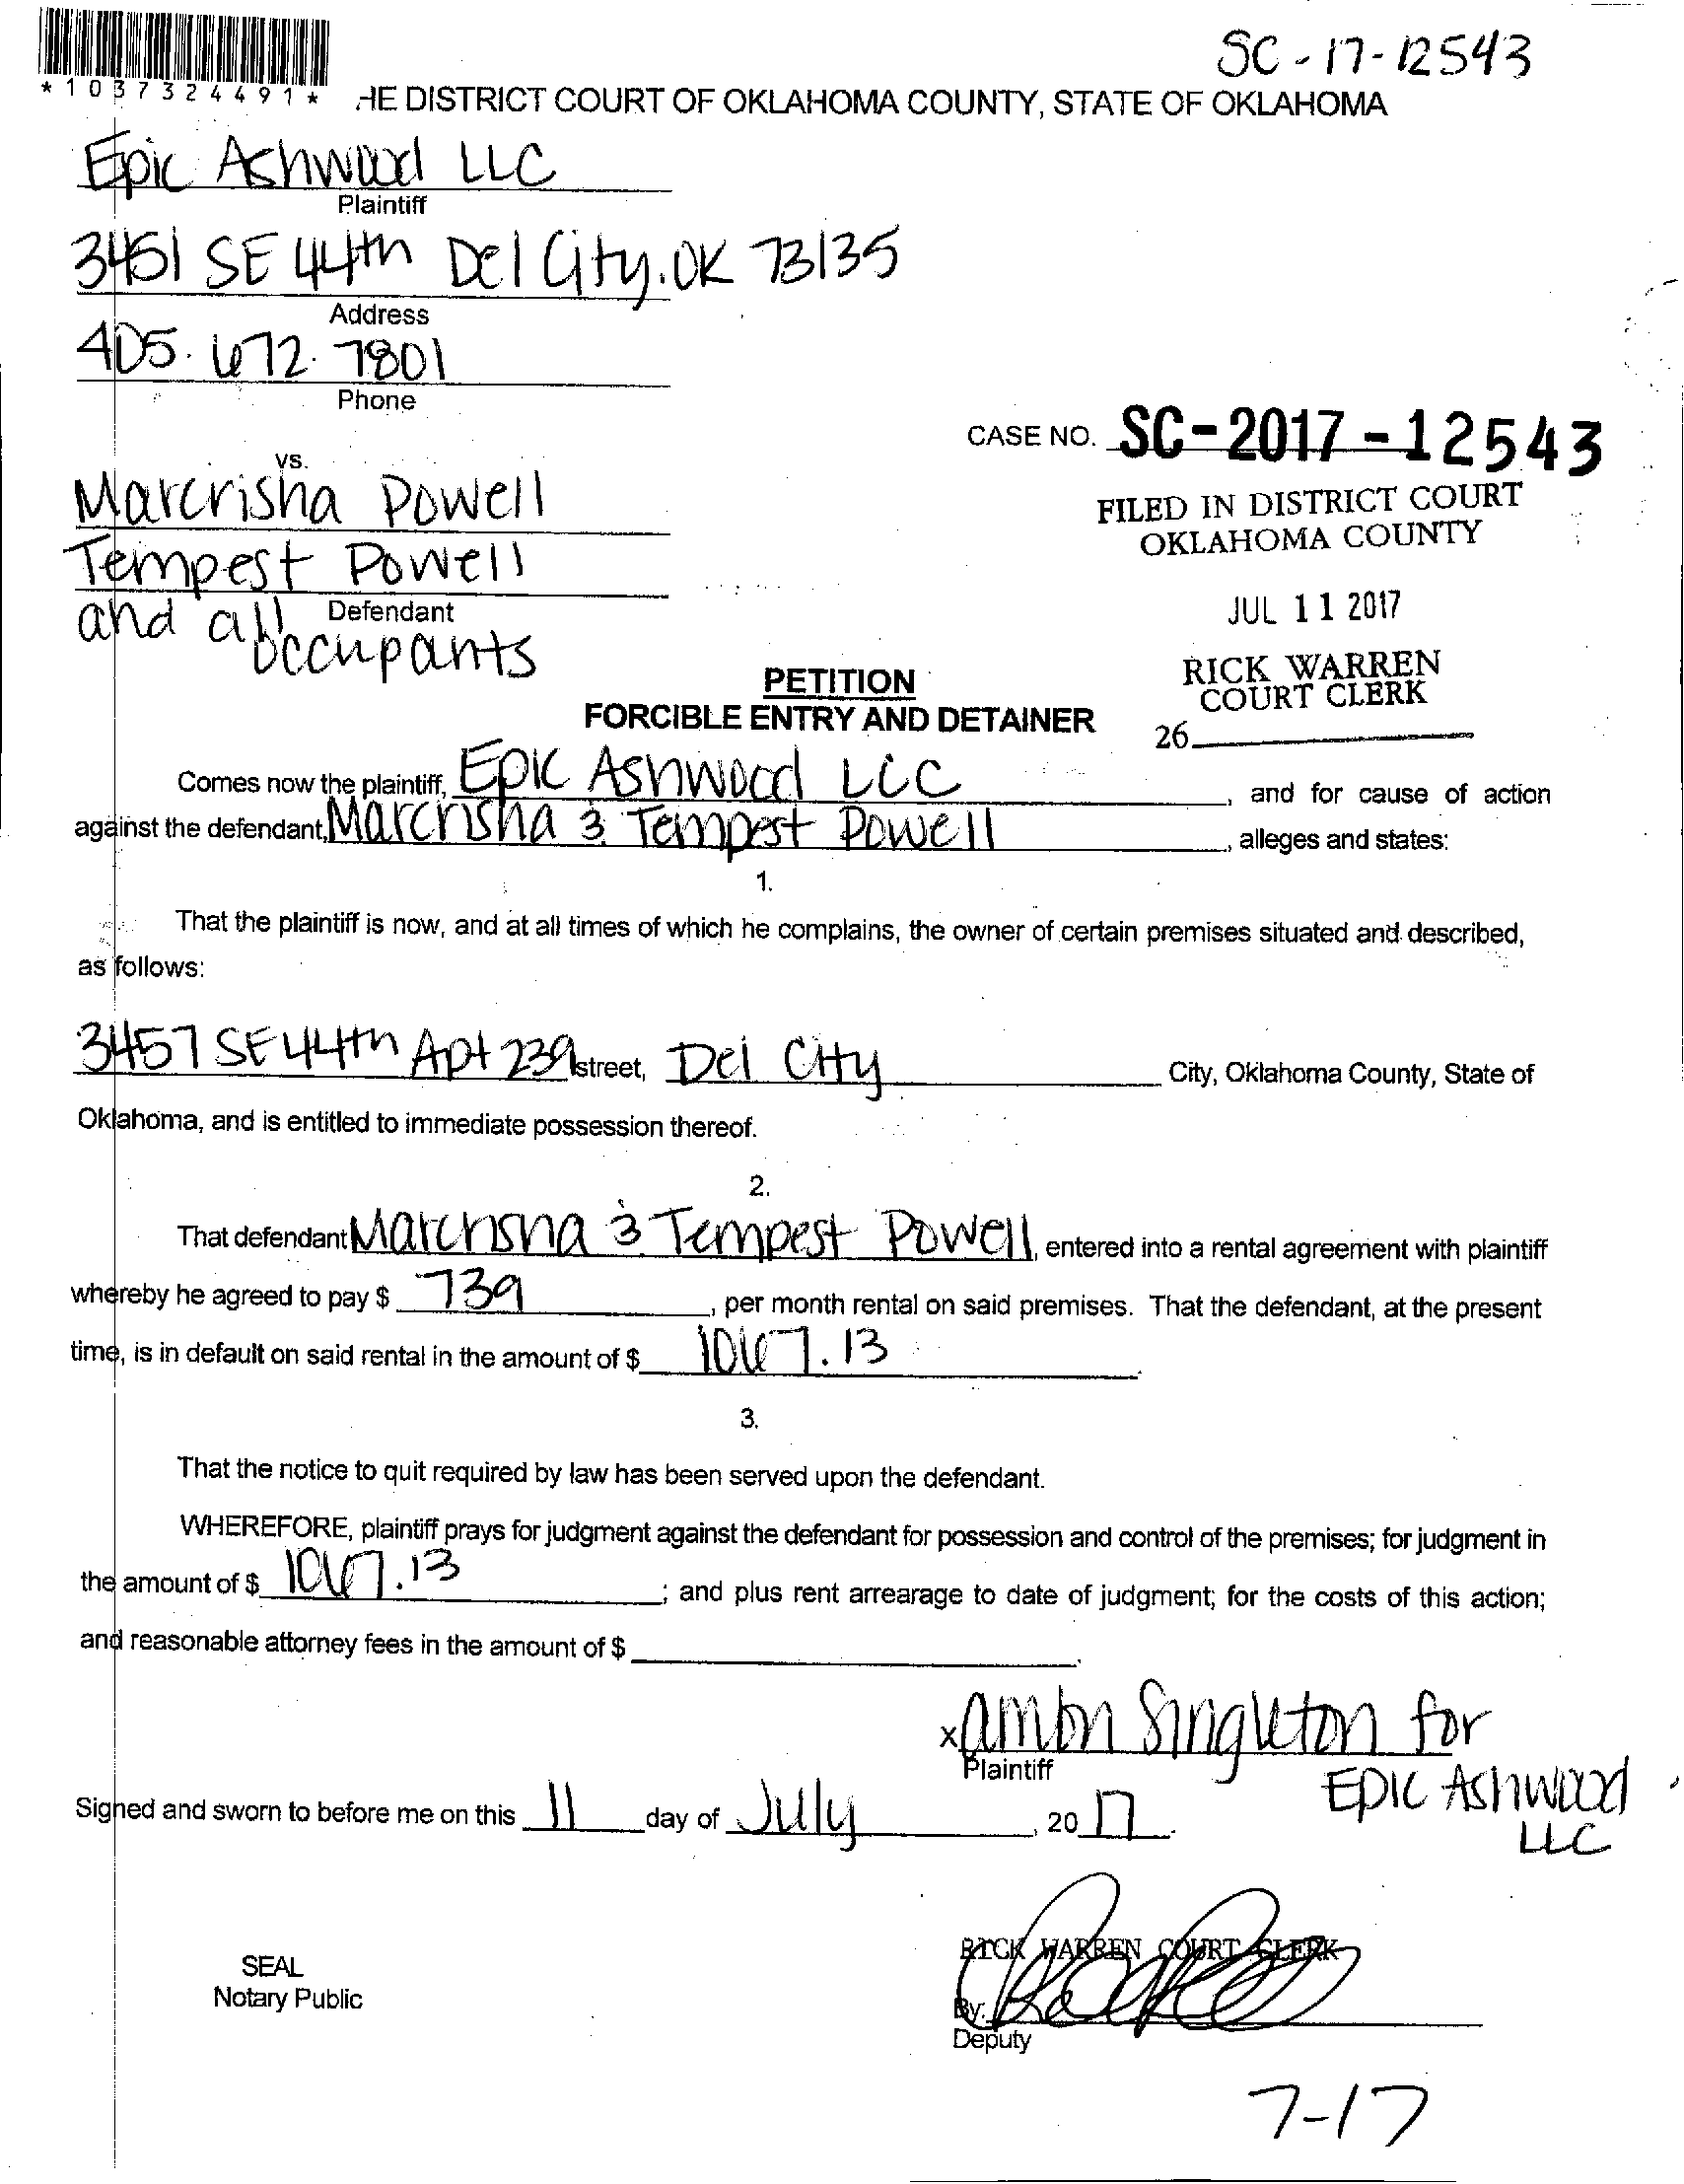 SC-17-12543
*1037324491*
HE DISTRICT COURT OF OKLAHOMA COUNTY, STATE OF OKLAHOMA
Epic Ashwood LLC
Plaintiff
3451 SE 44th Del City. OK 73135
Address
405. 672. 7801
Phone
CASE NO. SC-2017-12543
vs.
Marcrisha Powell
FILED IN DISTRICT COURT
OKLAHOMA COUNTY
Tempest Powell
and all Defendant
occupants
JUL 11 2017
RICK WARREN
COURT CLERK
26
PETITION
FORCIBLE ENTRY AND DETAINER
Comes now the plaintiff, Epic Ashwood LLC, and for cause of action
against the defendant, Marcrisha & Tempest Powell, alleges and states:
1.
That the plaintiff is now, and at all times of which he complains, the owner of certain premises situated and described,
as follows:
3457 SE 44th Apt 239 street, Del City City, Oklahoma County, State of
Oklahoma, and is entitled to immediate possession thereof.
2.
That defendant Marcrisha & Tempest Powell, entered into a rental agreement with plaintiff
whereby he agreed to pay $ 739, per month rental on said premises. That the defendant, at the present
time, is in default on said rental in the amount of $ 1067.13.
3.
That the notice to quit required by law has been served upon the defendant.
WHEREFORE, plaintiff prays for judgment against the defendant for possession and control of the premises; for judgment in
the amount of $ 1067.13; and plus rent arrearage to date of judgment; for the costs of this action;
and reasonable attorney fees in the amount of $.
x Singleton for
Plaintiff
Epic Ashwood
LLC
Signed and sworn to before me on this 11 day of July, 20 17.
RICK WARREN COURT CLERK
SEAL
Notary Public
By:
Deputy
7-17